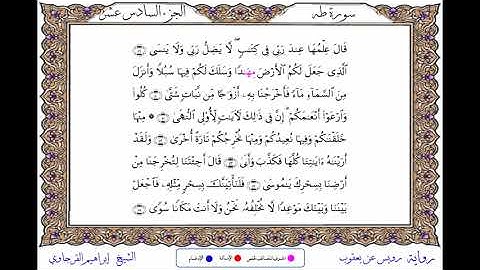 الجزء السادس عشر
سورة طه
قَالَ عِلْمُهَا عِندَ رَبِّي فِي كِتَٰبٍ لَّا يَضِلُّ رَبِّي وَلَا يَنسَى
ٱلَّذِي جَعَلَ لَكُمُ ٱلْأَرْضَ مِهَٰدًا وَسَلَكَ لَكُمْ فِيهَا سُبُلًا وَأَنزَلَ
مِنَ ٱلسَّمَآءِ مَآءً فَأَخْرَجْنَا بِهِۦٓ أَزْوَٰجًا مِّن نَّبَاتٍ شَتَّىٰ كُلُوا۟
وَٱرْعَوْا۟ أَنْعَٰمَكُمْ إِنَّ فِي ذَٰلِكَ لَأٓيَٰتٍ لِّأُو۟لِي ٱلنُّهَىٰ مِنْهَا
خَلَقْنَٰكُمْ وَفِيهَا نُعِيدُكُمْ وَمِنْهَا نُخْرِجُكُمْ تَارَةً أُخْرَىٰ وَلَقَدْ
أَرَيْنَٰهُ ءَايَٰتِنَا كُلَّهَا فَكَذَّبَ وَأَبَىٰ قَالَ أَجِئْتَنَا لِتُخْرِجَنَا مِنْ
أَرْضِنَا بِسِحْرِكَ يَٰمُوسَىٰ فَلَنَأْتِيَنَّكَ بِسِحْرٍ مِّثْلِهِۦ فَٱجْعَلْ
بَيْنَنَا وَبَيْنَكَ مَوْعِدًا لَّا نُخْلِفُهُۥ نَحْنُ وَلَآ أَنتَ مَكَانًا سُوًى
رواية رويس عن يعقوب
الشيخ إبراهيم الفرجاوي